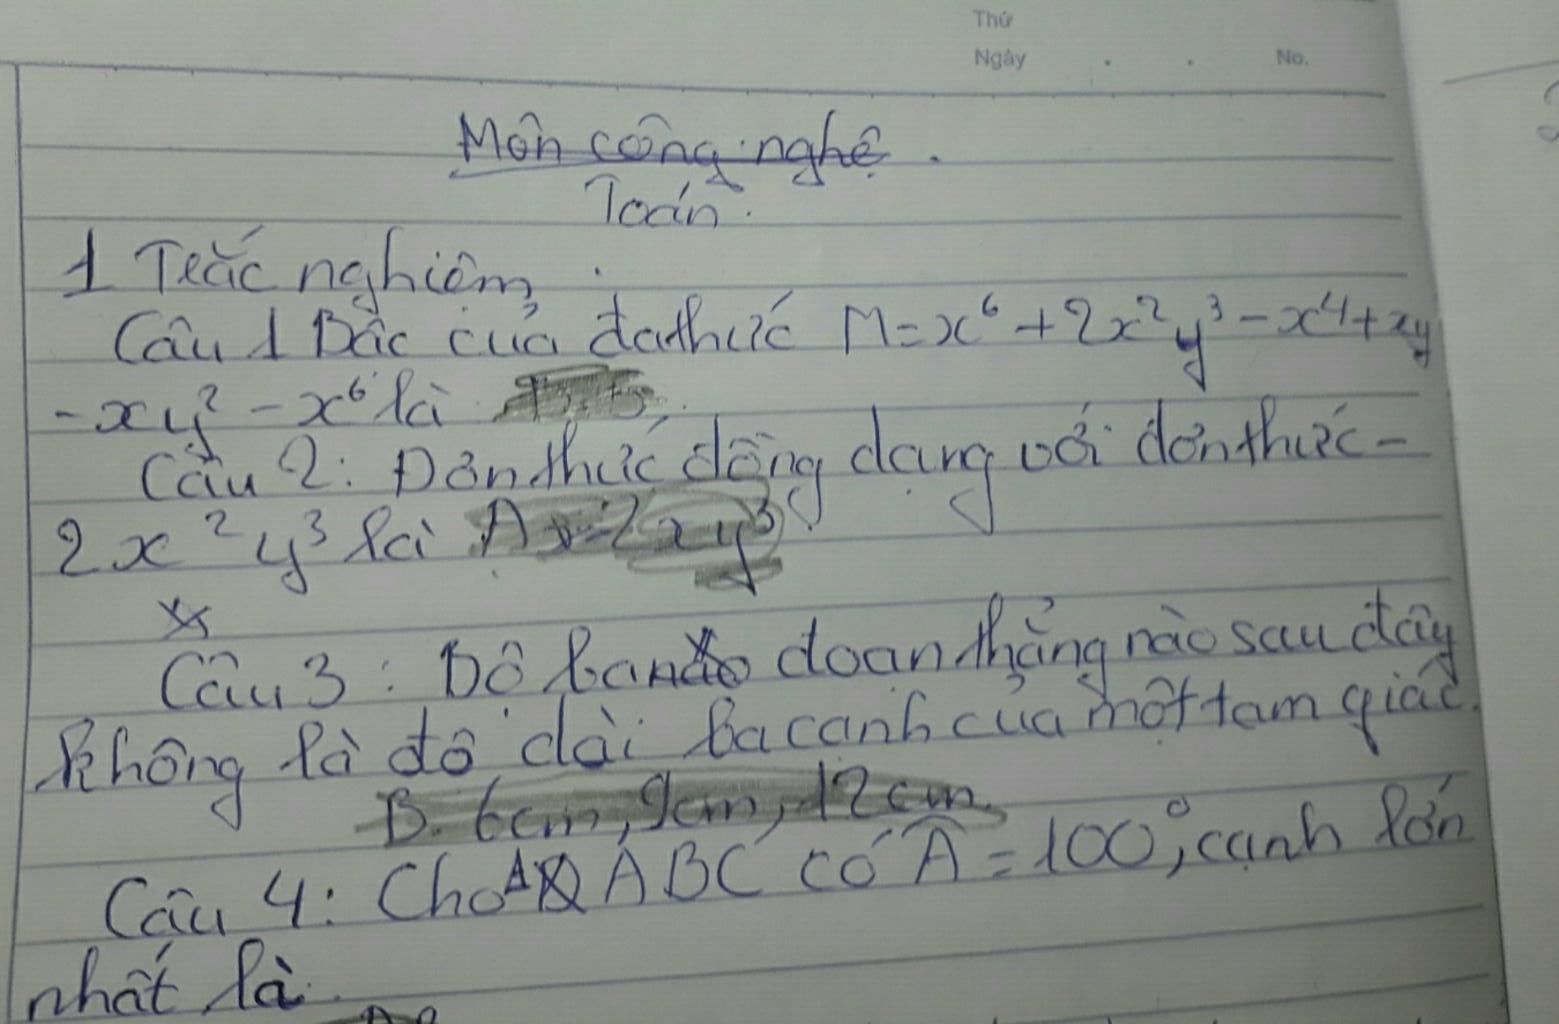 Thứ
Ngày . . No.
Môn công nghệ.
Toán.
1 Trắc nghiệm.
Câu 1 Bậc của đa thức M = x⁶ + 2x²y³ - x⁴ + xy
- xy² - x⁶ là
Câu 2: Đơn thức đồng dạng với đơn thức -
2x²y³ là A -2xy³
Câu 3: Bộ ba đoạn thẳng nào sau đây
không là độ dài ba cạnh của một tam giác
B. 6cm, 9cm, 12cm.
Câu 4: Cho ABC có Â = 100°, cạnh lớn
nhất là.